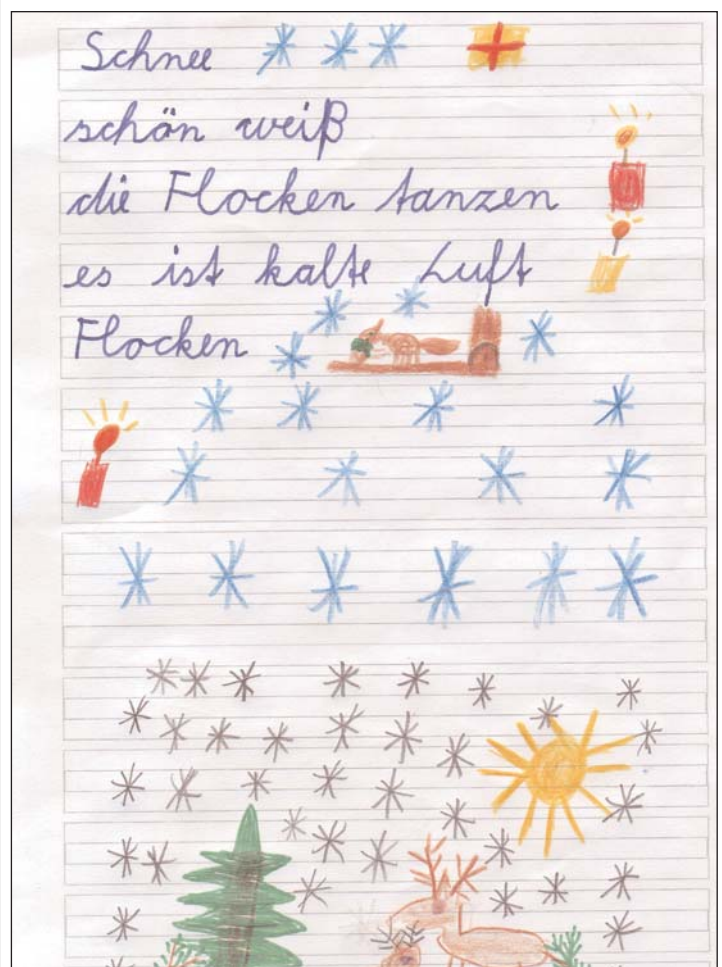 Schnee
schön weiß
die Flocken tanzen
es ist kalte Luft
Flocken